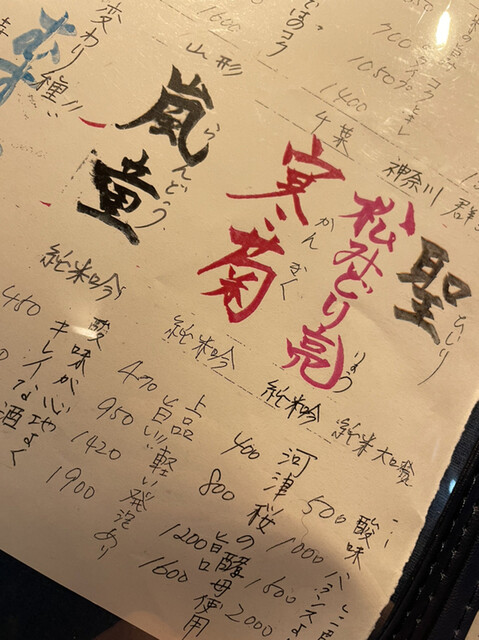 群
聖
ひじり
純米大
酸味
バランスよ
500
1000
1500
2000
神奈川
松みどり亮
りょう
純米吟
河津桜
の酵母使用
旨口
400
800
1200
1600
コクとキレ
700
1050
1400
千葉
寒菊
かんぎく
純米吟
上品
旨い!!軽い発泡あり
470
950
1420
1900
のコク
1600
山形
嵐童
らんどう
純米吟
酸味が心地よく
キレイな酒
480
変わり種!!